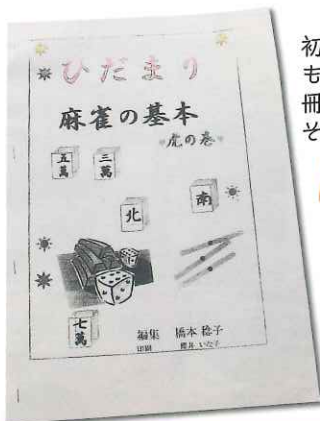 ひだまり
麻雀の基本
虎の巻
五萬
三萬
北
南
七萬
編集 橋本 稔子
印刷 櫻井 いな子
初
も
冊
そ